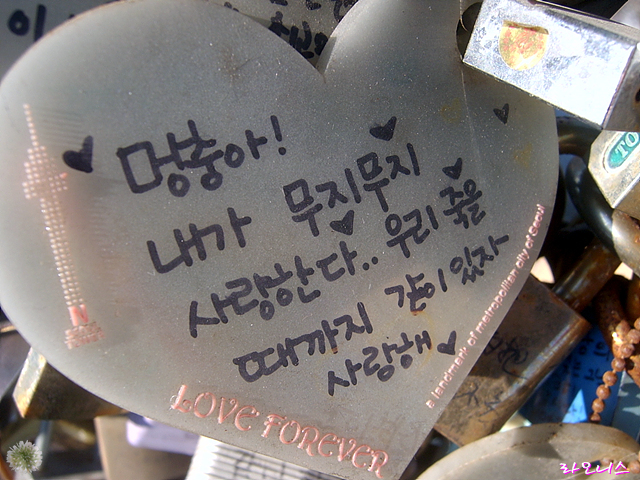 멍충아!
내가 무지무지
사랑한다.. 우리 죽을
때까지 같이 있자
사랑해
LOVE FOREVER
a landmark of metropolitan city of Seoul
TO
라오니스